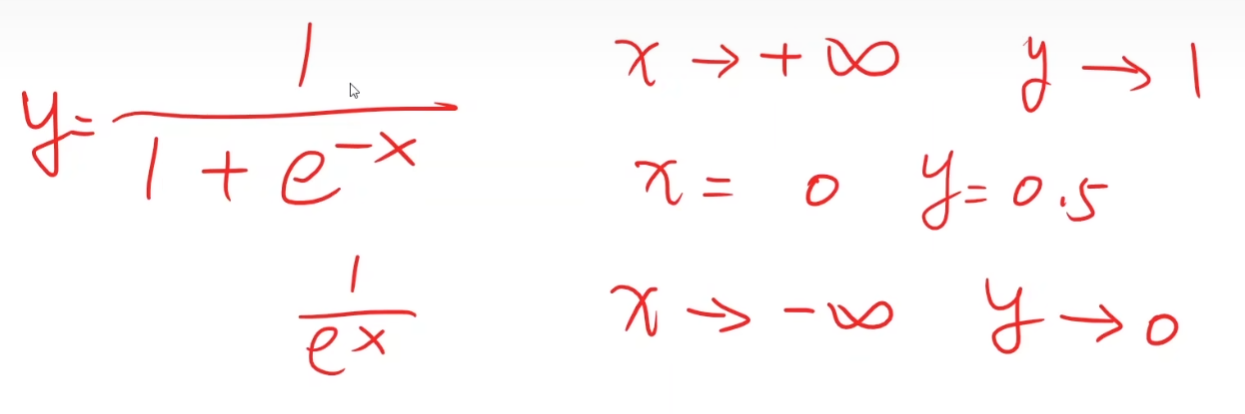 y = 1 / (1 + e^{-x})
1 / e^x
x → +∞ y → 1
x = 0 y = 0.5
x → -∞ y → 0